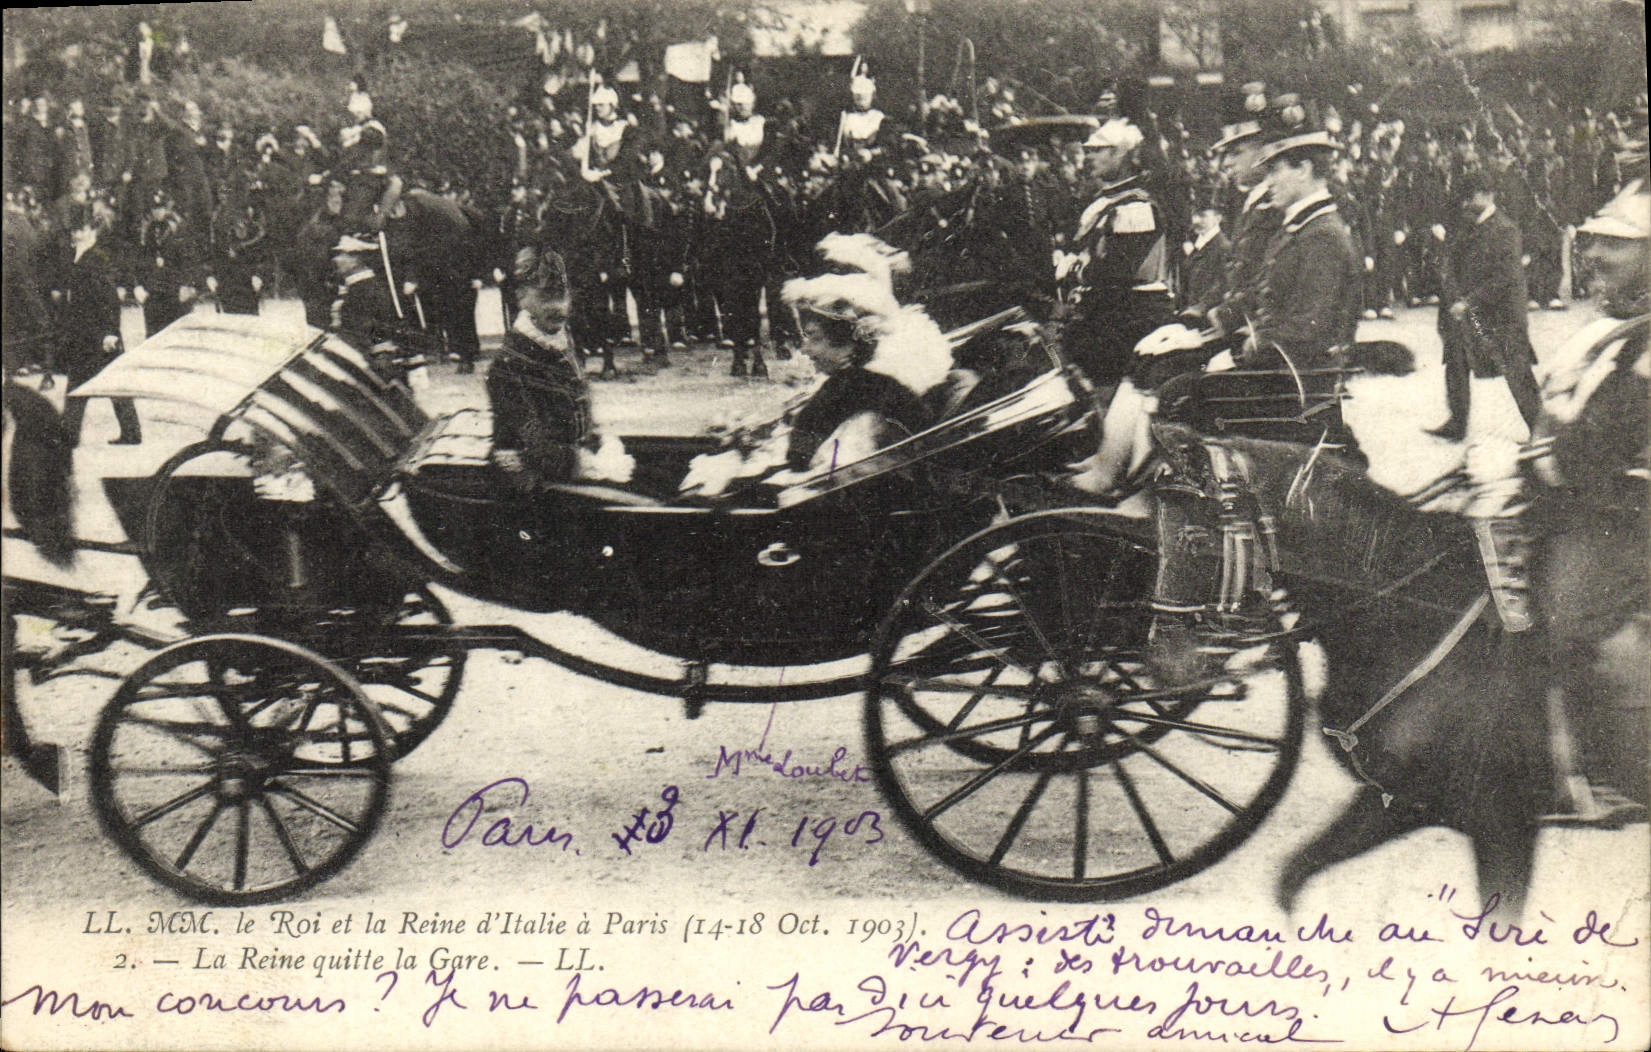 Mme Loubet
Paris. 3 XI. 1903
LL. MM. le Roi et la Reine d'Italie à Paris (14-18 Oct. 1903).
2. — La Reine quitte la Gare. — LL.
Assisté dimanche au "Sire de
Vergy : des trouvailles, il y a mieux.
Mon concours ? Je ne passerai pas d'ici quelques jours.
Souvenir amical